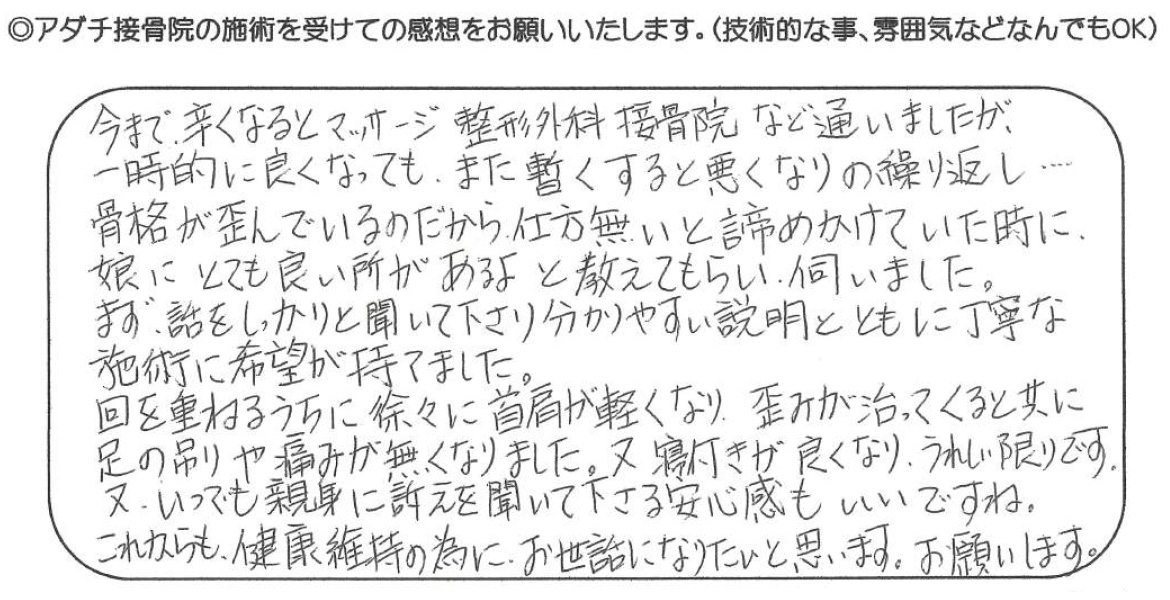 ◎アダチ接骨院の施術を受けての感想をお願いいたします。(技術的な事、雰囲気などなんでもOK)
今まで、辛くなるとマッサージ 整形外科 接骨院 など通いましたが、
一時的に良くなっても、また暫くすると悪くなりの繰り返し……
骨格が歪んでいるのだから、仕方無いと諦めかけていた時に、
娘に とても良い所が あるよ と教えてもらい、伺いました。
まず、話をしっかりと聞いて下さり分かりやすい説明とともに丁寧な
施術に希望が持てました。
回を重ねるうちに徐々に首肩が軽くなり、歪みが治ってくると共に
足の吊りや痛みが無くなりました。又 寝付きが良くなり、うれしい限りです。
又、いつでも親身に訴えを聞いて下さる安心感も いいですね。
これからも、健康維持の為に、お世話になりたいと思います。お願いします。